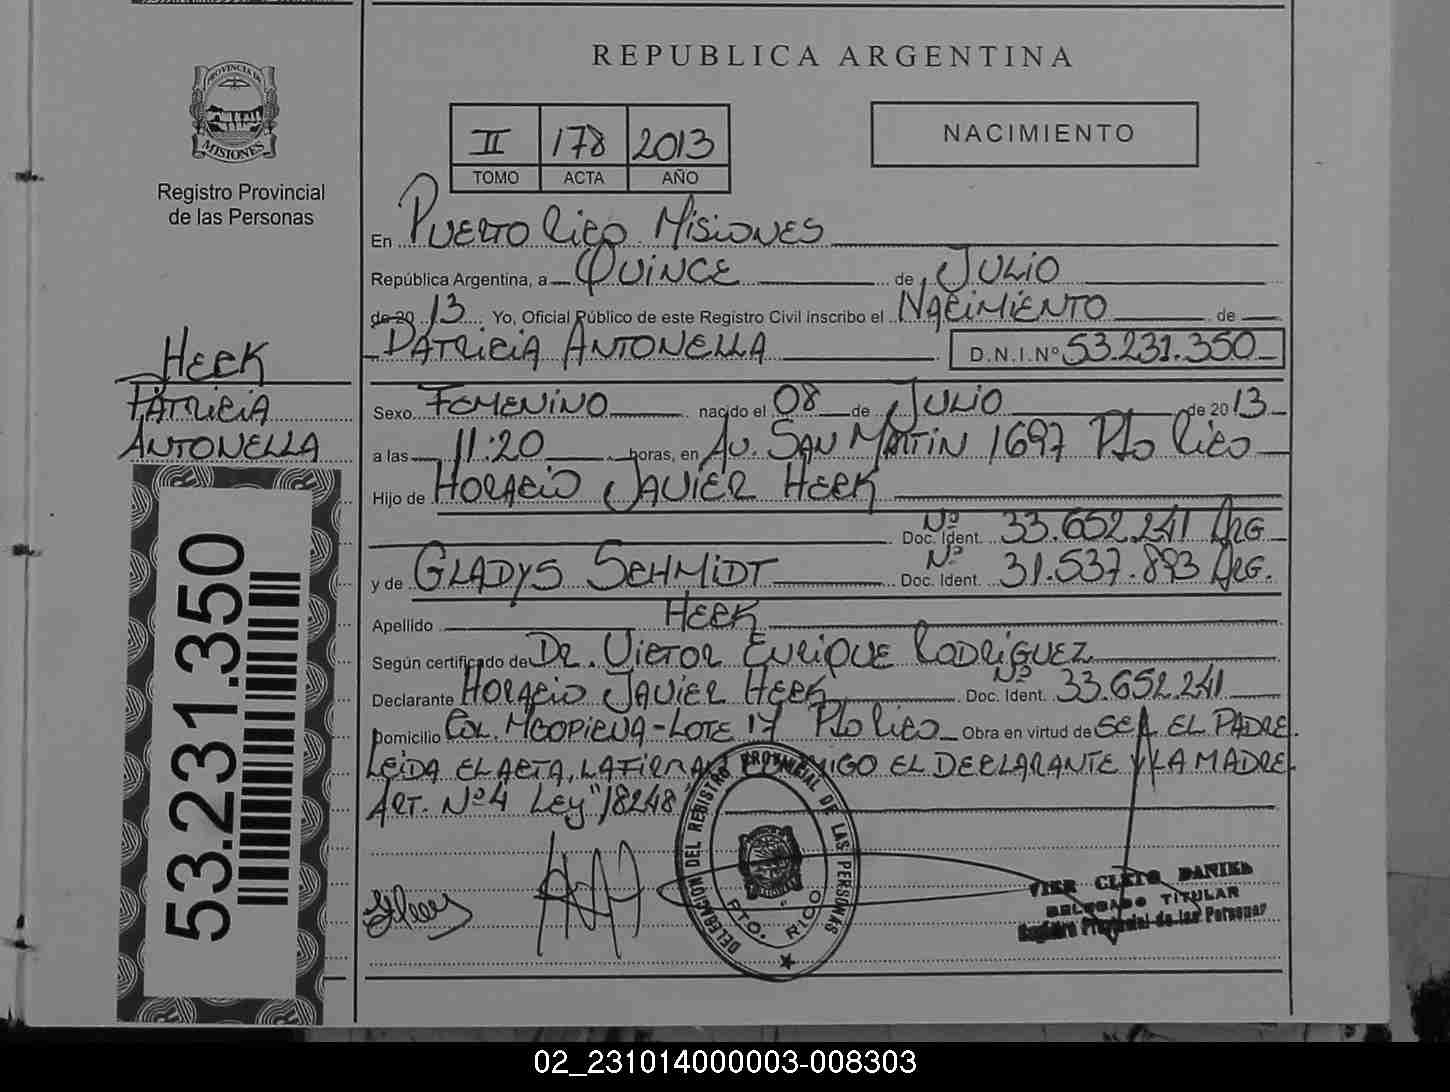 REPUBLICA ARGENTINA
PROVINCIA DE
MISIONES
Registro Provincial
de las Personas
II 178 2013
TOMO ACTA AÑO
NACIMIENTO
En Puerto Rico Misiones
República Argentina, a Quince de Julio
de 20 13 Yo, Oficial Público de este Registro Civil inscribo el Nacimiento de
Patricia Antonella D.N.I.Nº 53.231.350
HEEK
PATRICIA
ANTONELLA
53.231.350
Sexo Femenino nacido el 08 de Julio de 20 13
a las 11:20 horas, en Av. San Martin 1697 Pto Rico
Hijo de Horacio Javier Heek
Doc. Ident. Nº 33.652.241 Arg.
y de Gladys Schmidt Doc. Ident. Nº 31.537.893 Arg.
Apellido Heek
Según certificado de Dr. Victor Enrique Rodriguez
Declarante Horacio Javier Heek Doc. Ident. Nº 33.652.241
Domicilio Col. Lote 17 Pto Rico Obra en virtud de ser el padre.
Leida el acta, la firman el declarante y la madre
Art. Nº 4 Ley "18248"
DELEGACION DEL REGISTRO PROVINCIAL DE LAS PERSONAS
PTO. RICO
CLETO DANIEL
DELEGADO TITULAR
Registro Provincial de las Personas
02_231014000003-008303